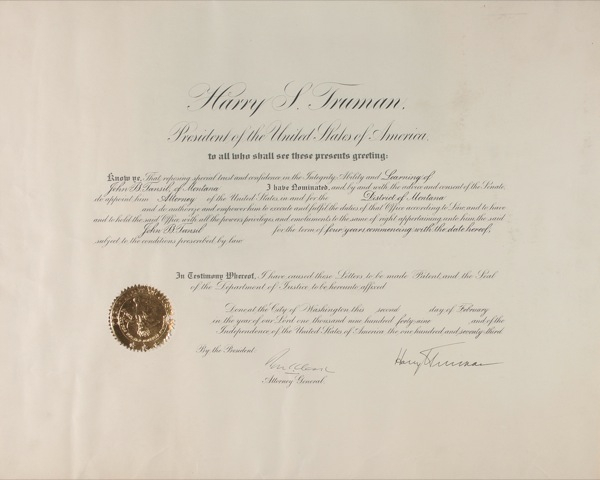 Harry S. Truman,
President of the United States of America,
to all who shall see these presents greeting:
Know ye, That reposing special trust and confidence in the Integrity, Ability and Learning of
John B. Tansil, of Montana I have Nominated, and, by and with the advice and consent of the Senate,
do appoint him Attorney of the United States in and for the District of Montana
and do authorize and empower him to execute and fulfil the duties of that Office according to Law, and to have
and to hold the said Office, with all the powers, privileges, and emoluments to the same of right appertaining unto him, the said
John B. Tansil for the term of four years commencing with the date hereof,
subject to the conditions prescribed by law.
In Testimony Whereof, I have caused these Letters to be made Patent, and the Seal
of the Department of Justice to be hereunto affixed.
Done at the City of Washington this second day of February
in the year of our Lord one thousand nine hundred forty-nine and of the
Independence of the United States of America the one hundred and seventy-third
By the President:
Harry S. Truman
Attorney General.